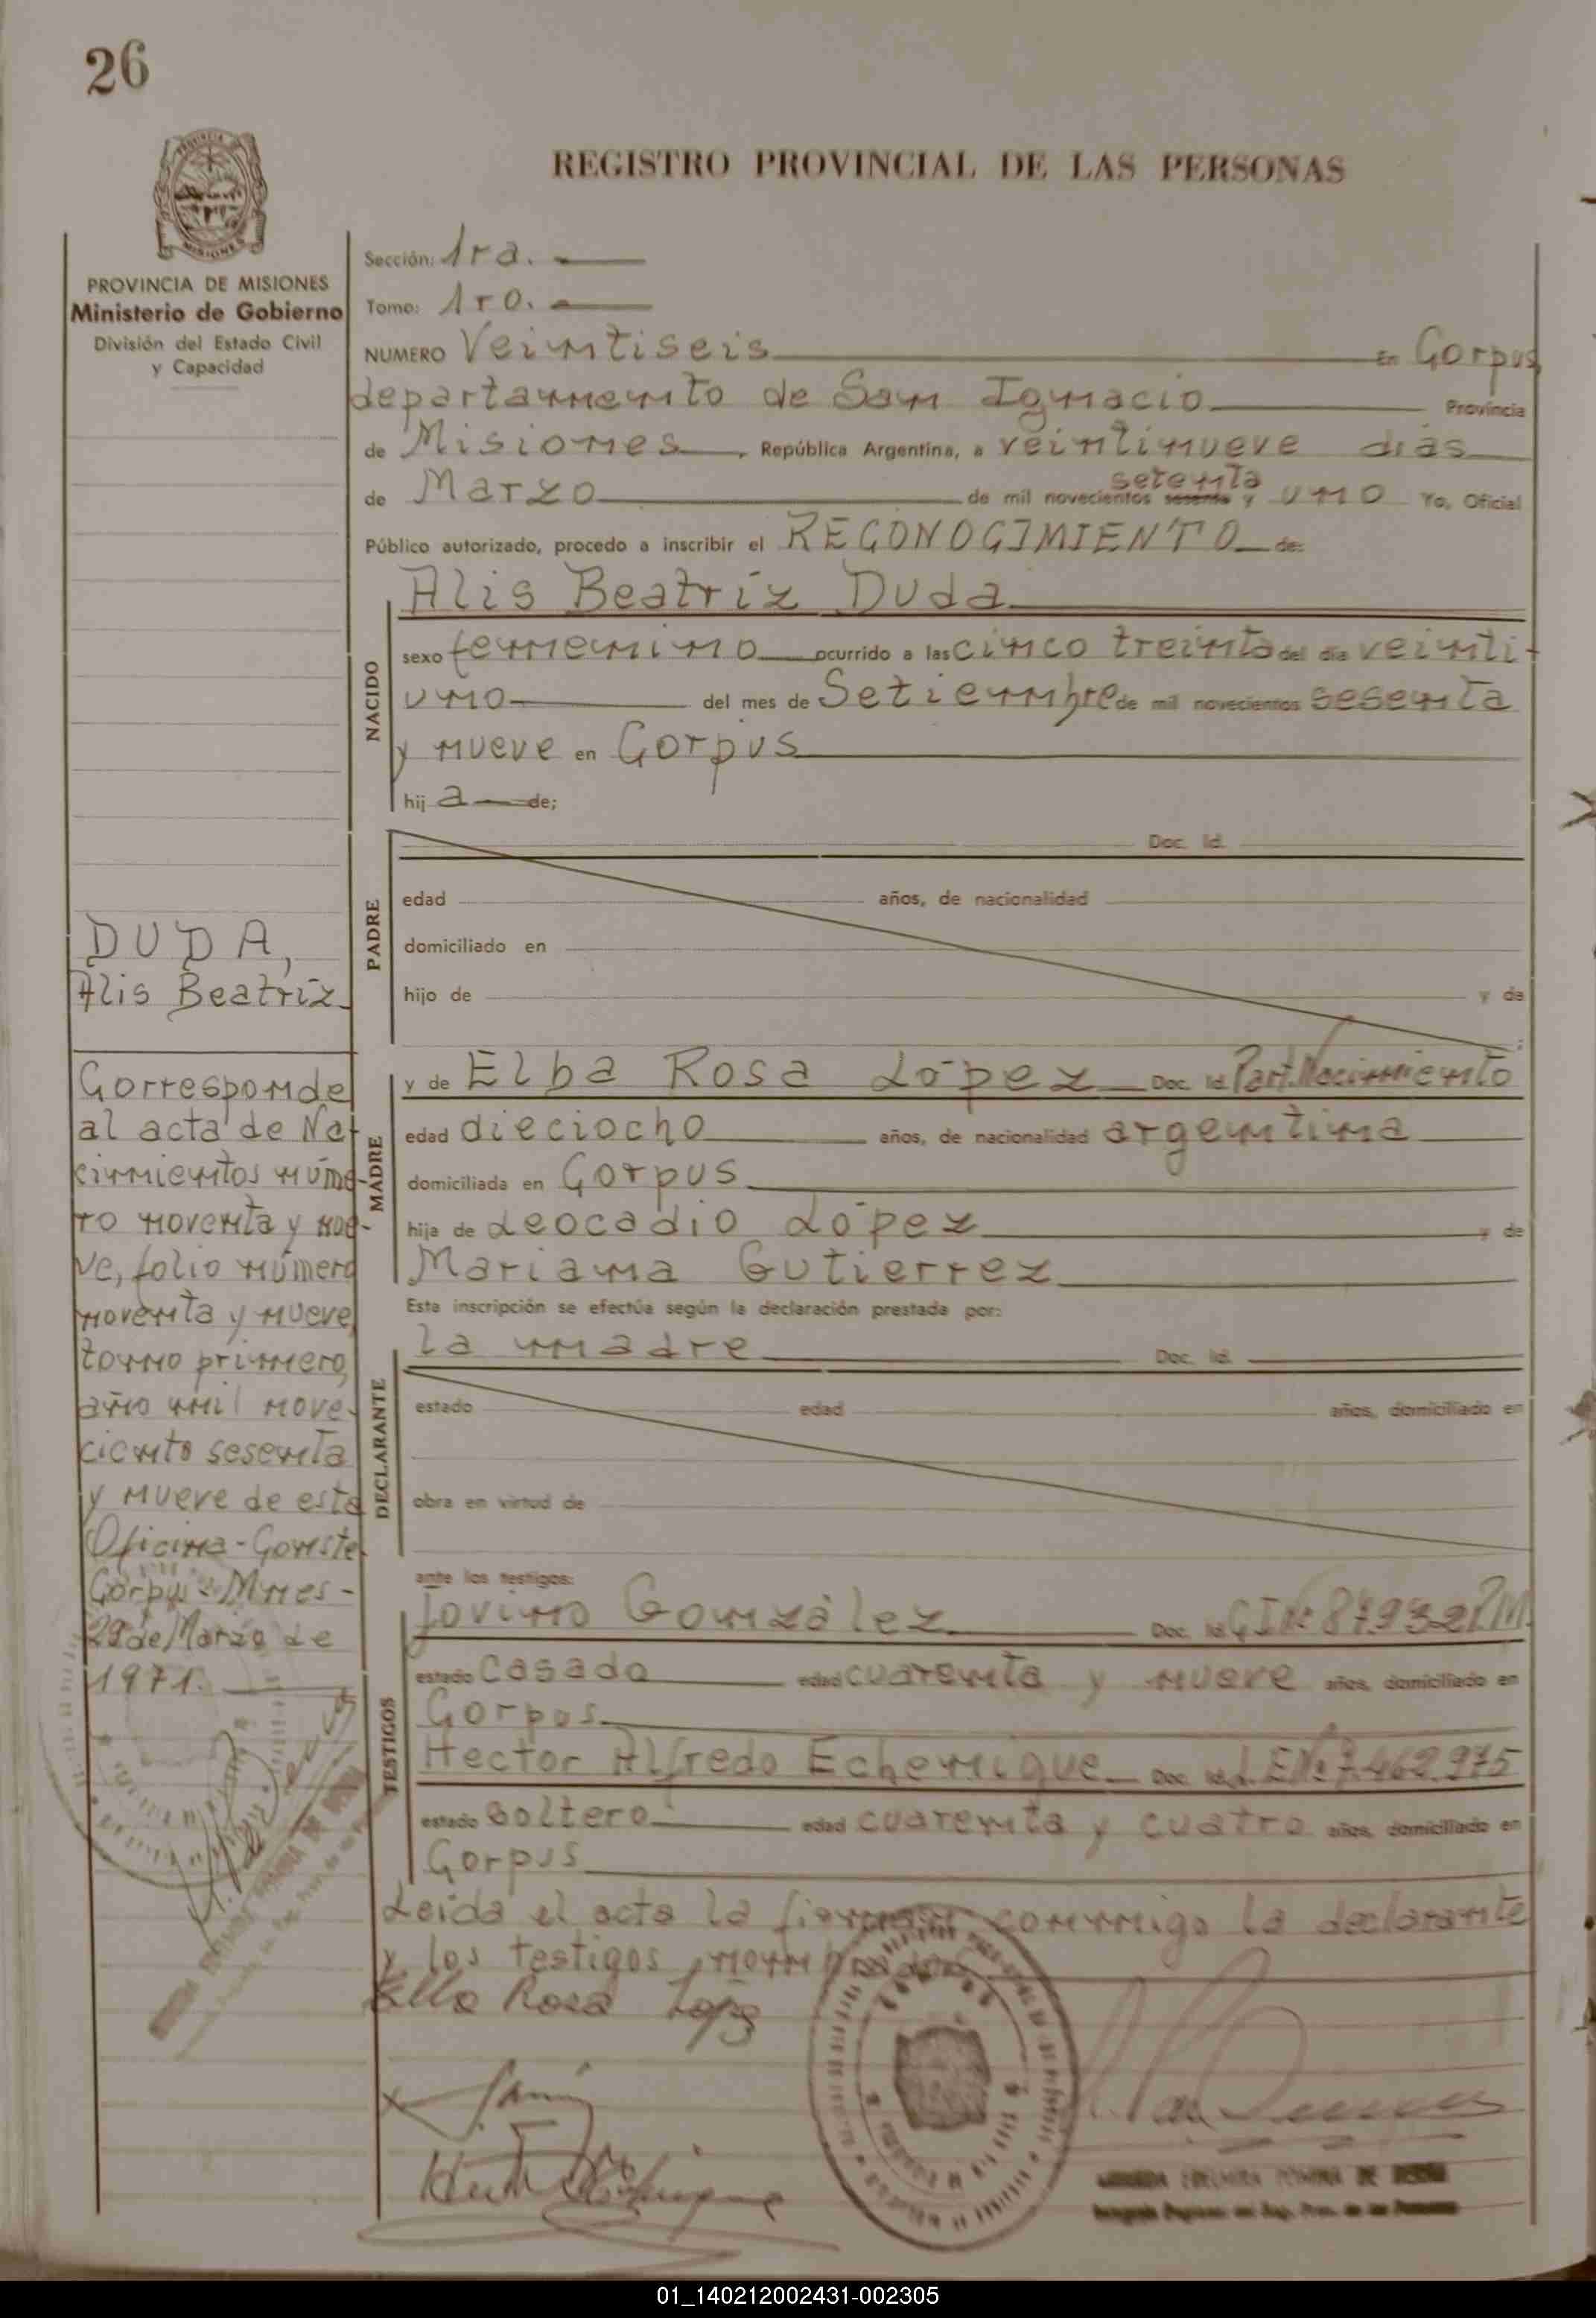 26
REGISTRO PROVINCIAL DE LAS PERSONAS
PROVINCIA DE MISIONES
Ministerio de Gobierno
División del Estado Civil
y Capacidad
Sección: 1ra.
Tomo: 1ro.
NUMERO Veintiseis En Corpus,
departamento de San Ignacio Provincia
de Misiones, República Argentina, a veintinueve dias
de Marzo de mil novecientos sesenta setenta y uno Yo, Oficial
Público autorizado, procedo a inscribir el RECONOCIMIENTO de:
NACIDO
Alis Beatríz Duda
sexo femenino ocurrido a las cinco treinta del día veinti-
uno del mes de Setiembre de mil novecientos sesenta
y nueve en Corpus
hij a de;
PADRE
Doc. Id.
edad años, de nacionalidad
domiciliado en
hijo de y de
MADRE
y de Elba Rosa López Doc. Id. Part. Nacimiento
edad dieciocho años, de nacionalidad argentina
domiciliada en Corpus
hija de Leocadio López y de
Mariana Gutierrez
Esta inscripción se efectúa según la declaración prestada por:
DECLARANTE
la madre Doc. Id.
estado edad años, domiciliado en
obra en virtud de
ante los testigos:
TESTIGOS
Jovino González Doc. Id. C.I.Nº 87.932 P.M.
estado casado edad cuarenta y nueve años, domiciliado en
Corpus
Hector Alfredo Echenique Doc. Id. L.E.Nº 7.462.975
estado soltero edad cuarenta y cuatro años, domiciliado en
Corpus
Leida el acta la firman conmigo la declarante
y los testigos nombrados
Elba Rosa Lopez
DUDA,
Alis Beatríz
Corresponde
al acta de Na-
cimientos núme-
ro noventa y nue-
ve, folio número
noventa y nueve,
tomo primero,
año mil nove-
ciento sesenta
y nueve de esta
Oficina-Conste
Corpus-Mnes-
29 de Marzo de
1971.
01_140212002431-002305